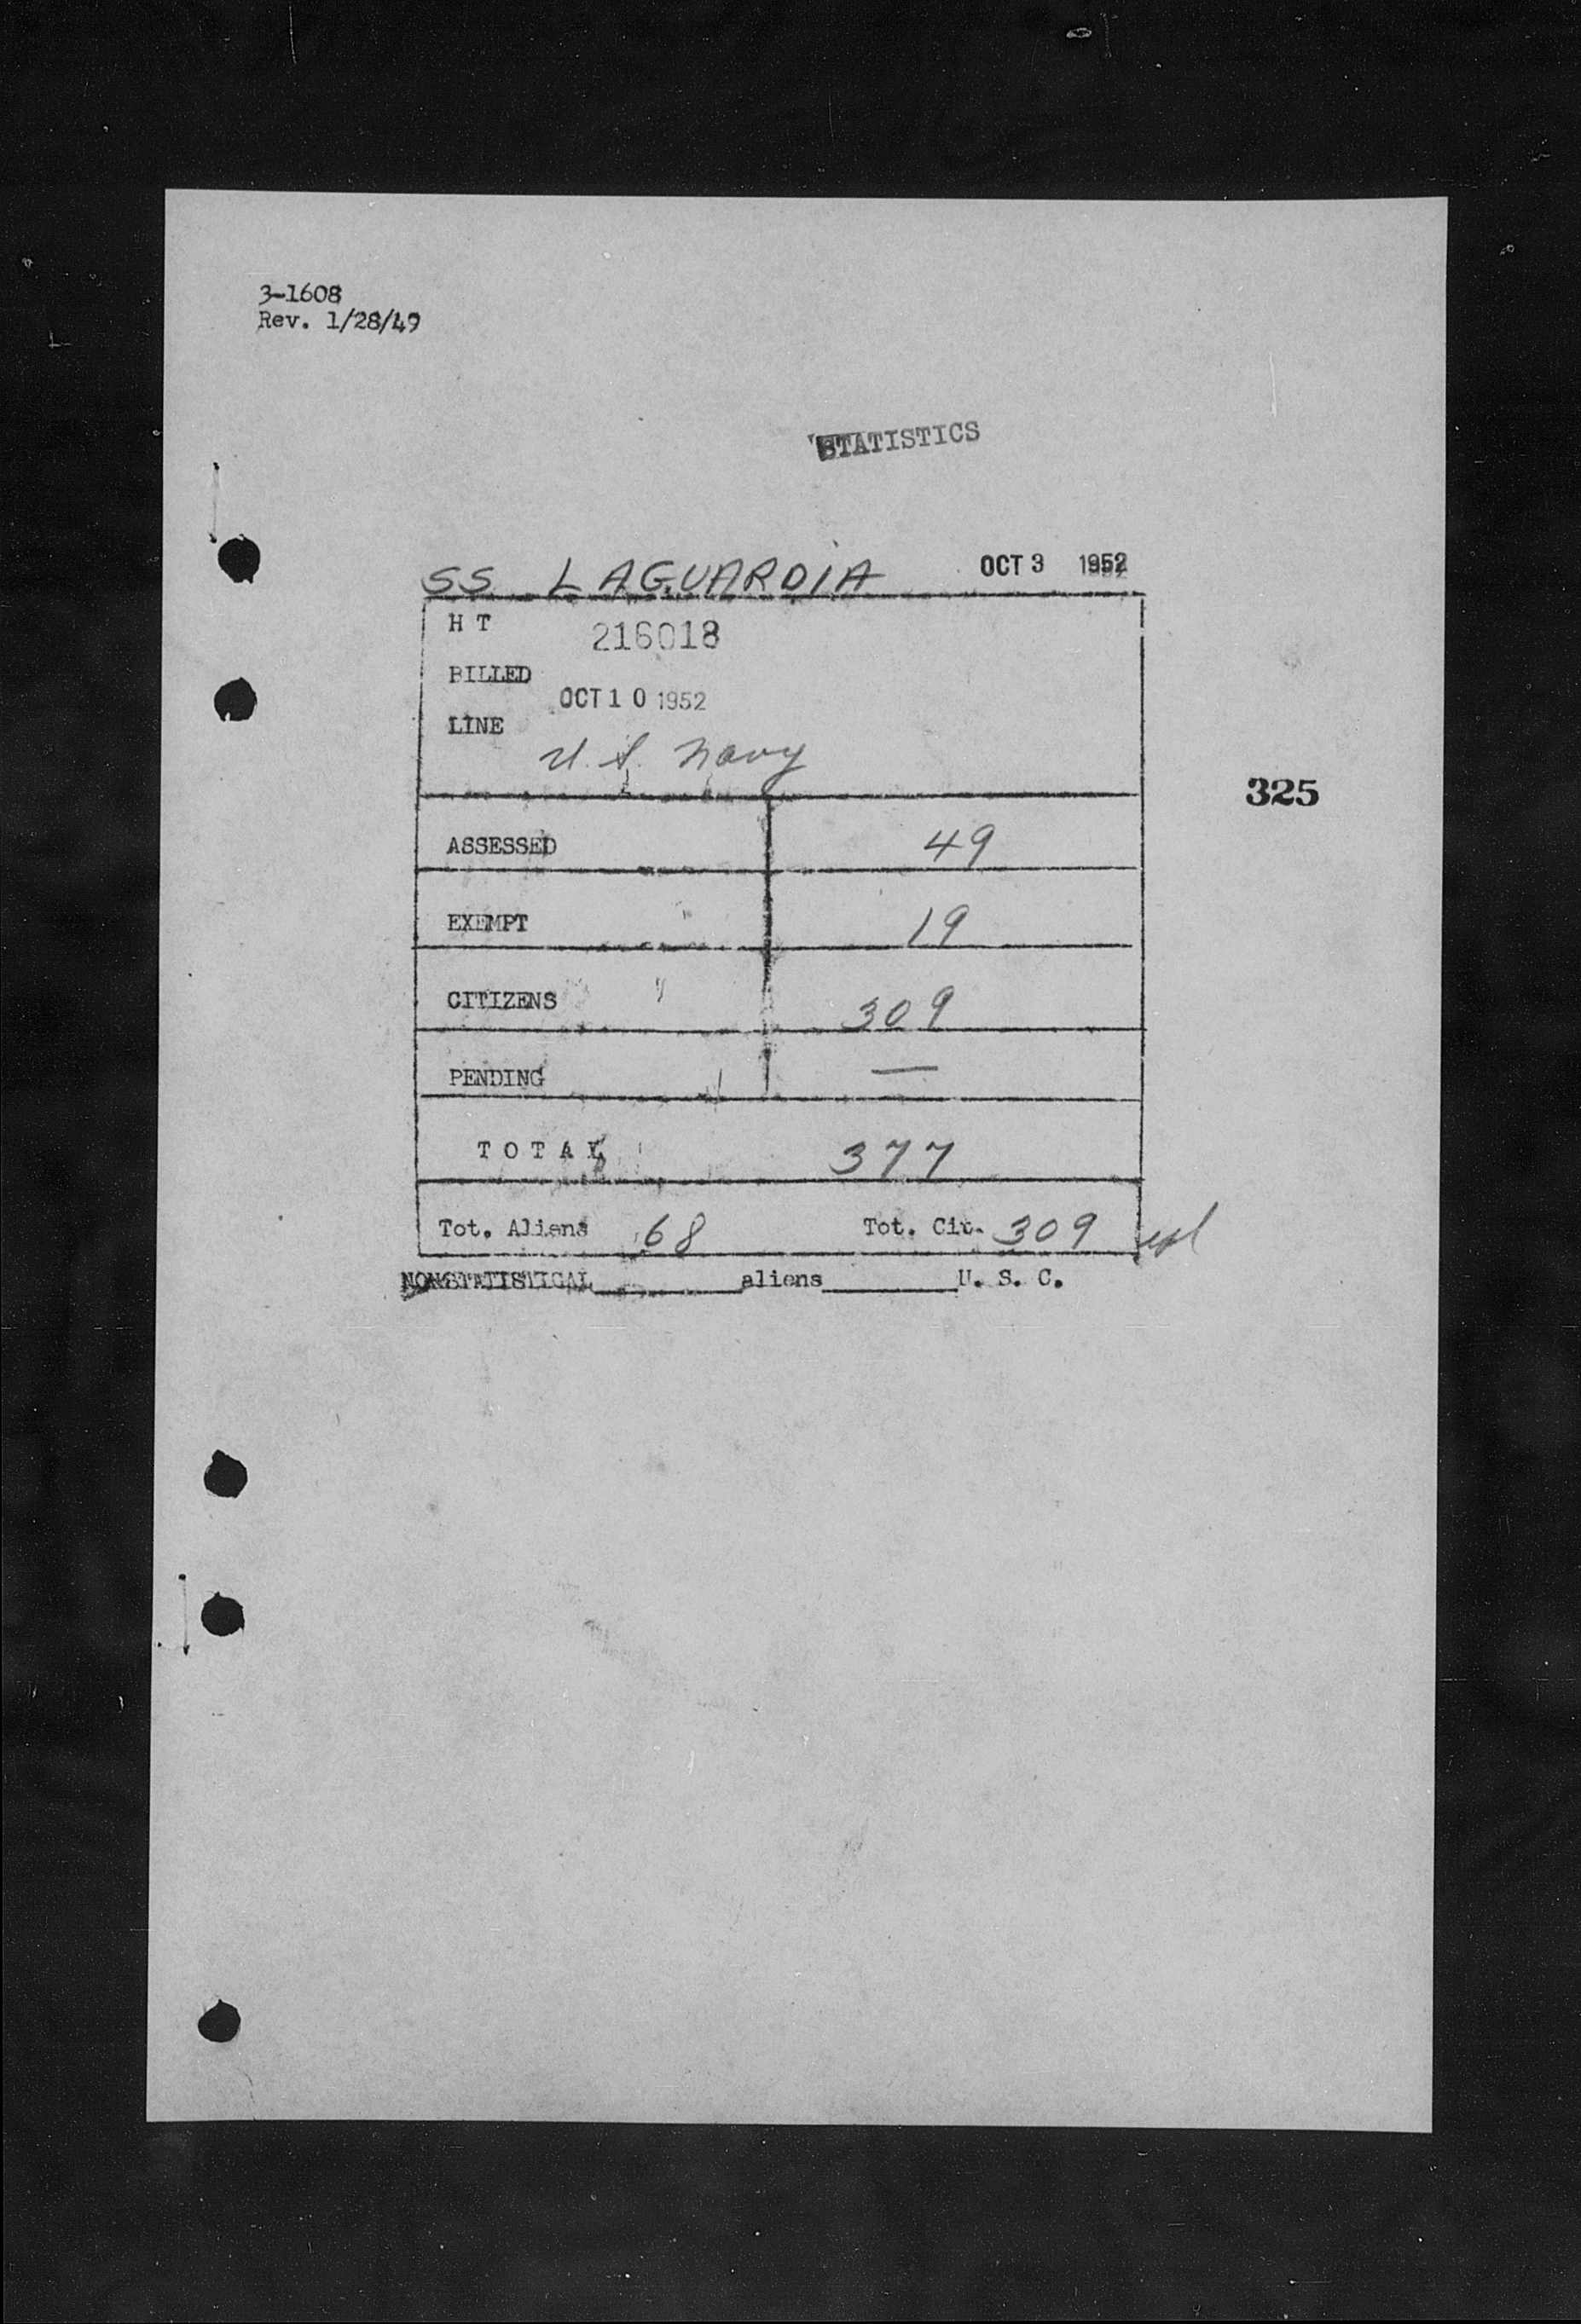 3-1608
Rev. 1/28/49
STATISTICS
SS LAGUARDIA OCT 3 1952
H T 216018
BILLED
OCT 10 1952
LINE
U.S. Navy
325
ASSESSED 49
EXEMPT 19
CITIZENS 309
PENDING —
TOTAL 377
Tot. Aliens 68 Tot. Cit. 309
NONSTATISTICAL________aliens________U. S. C.